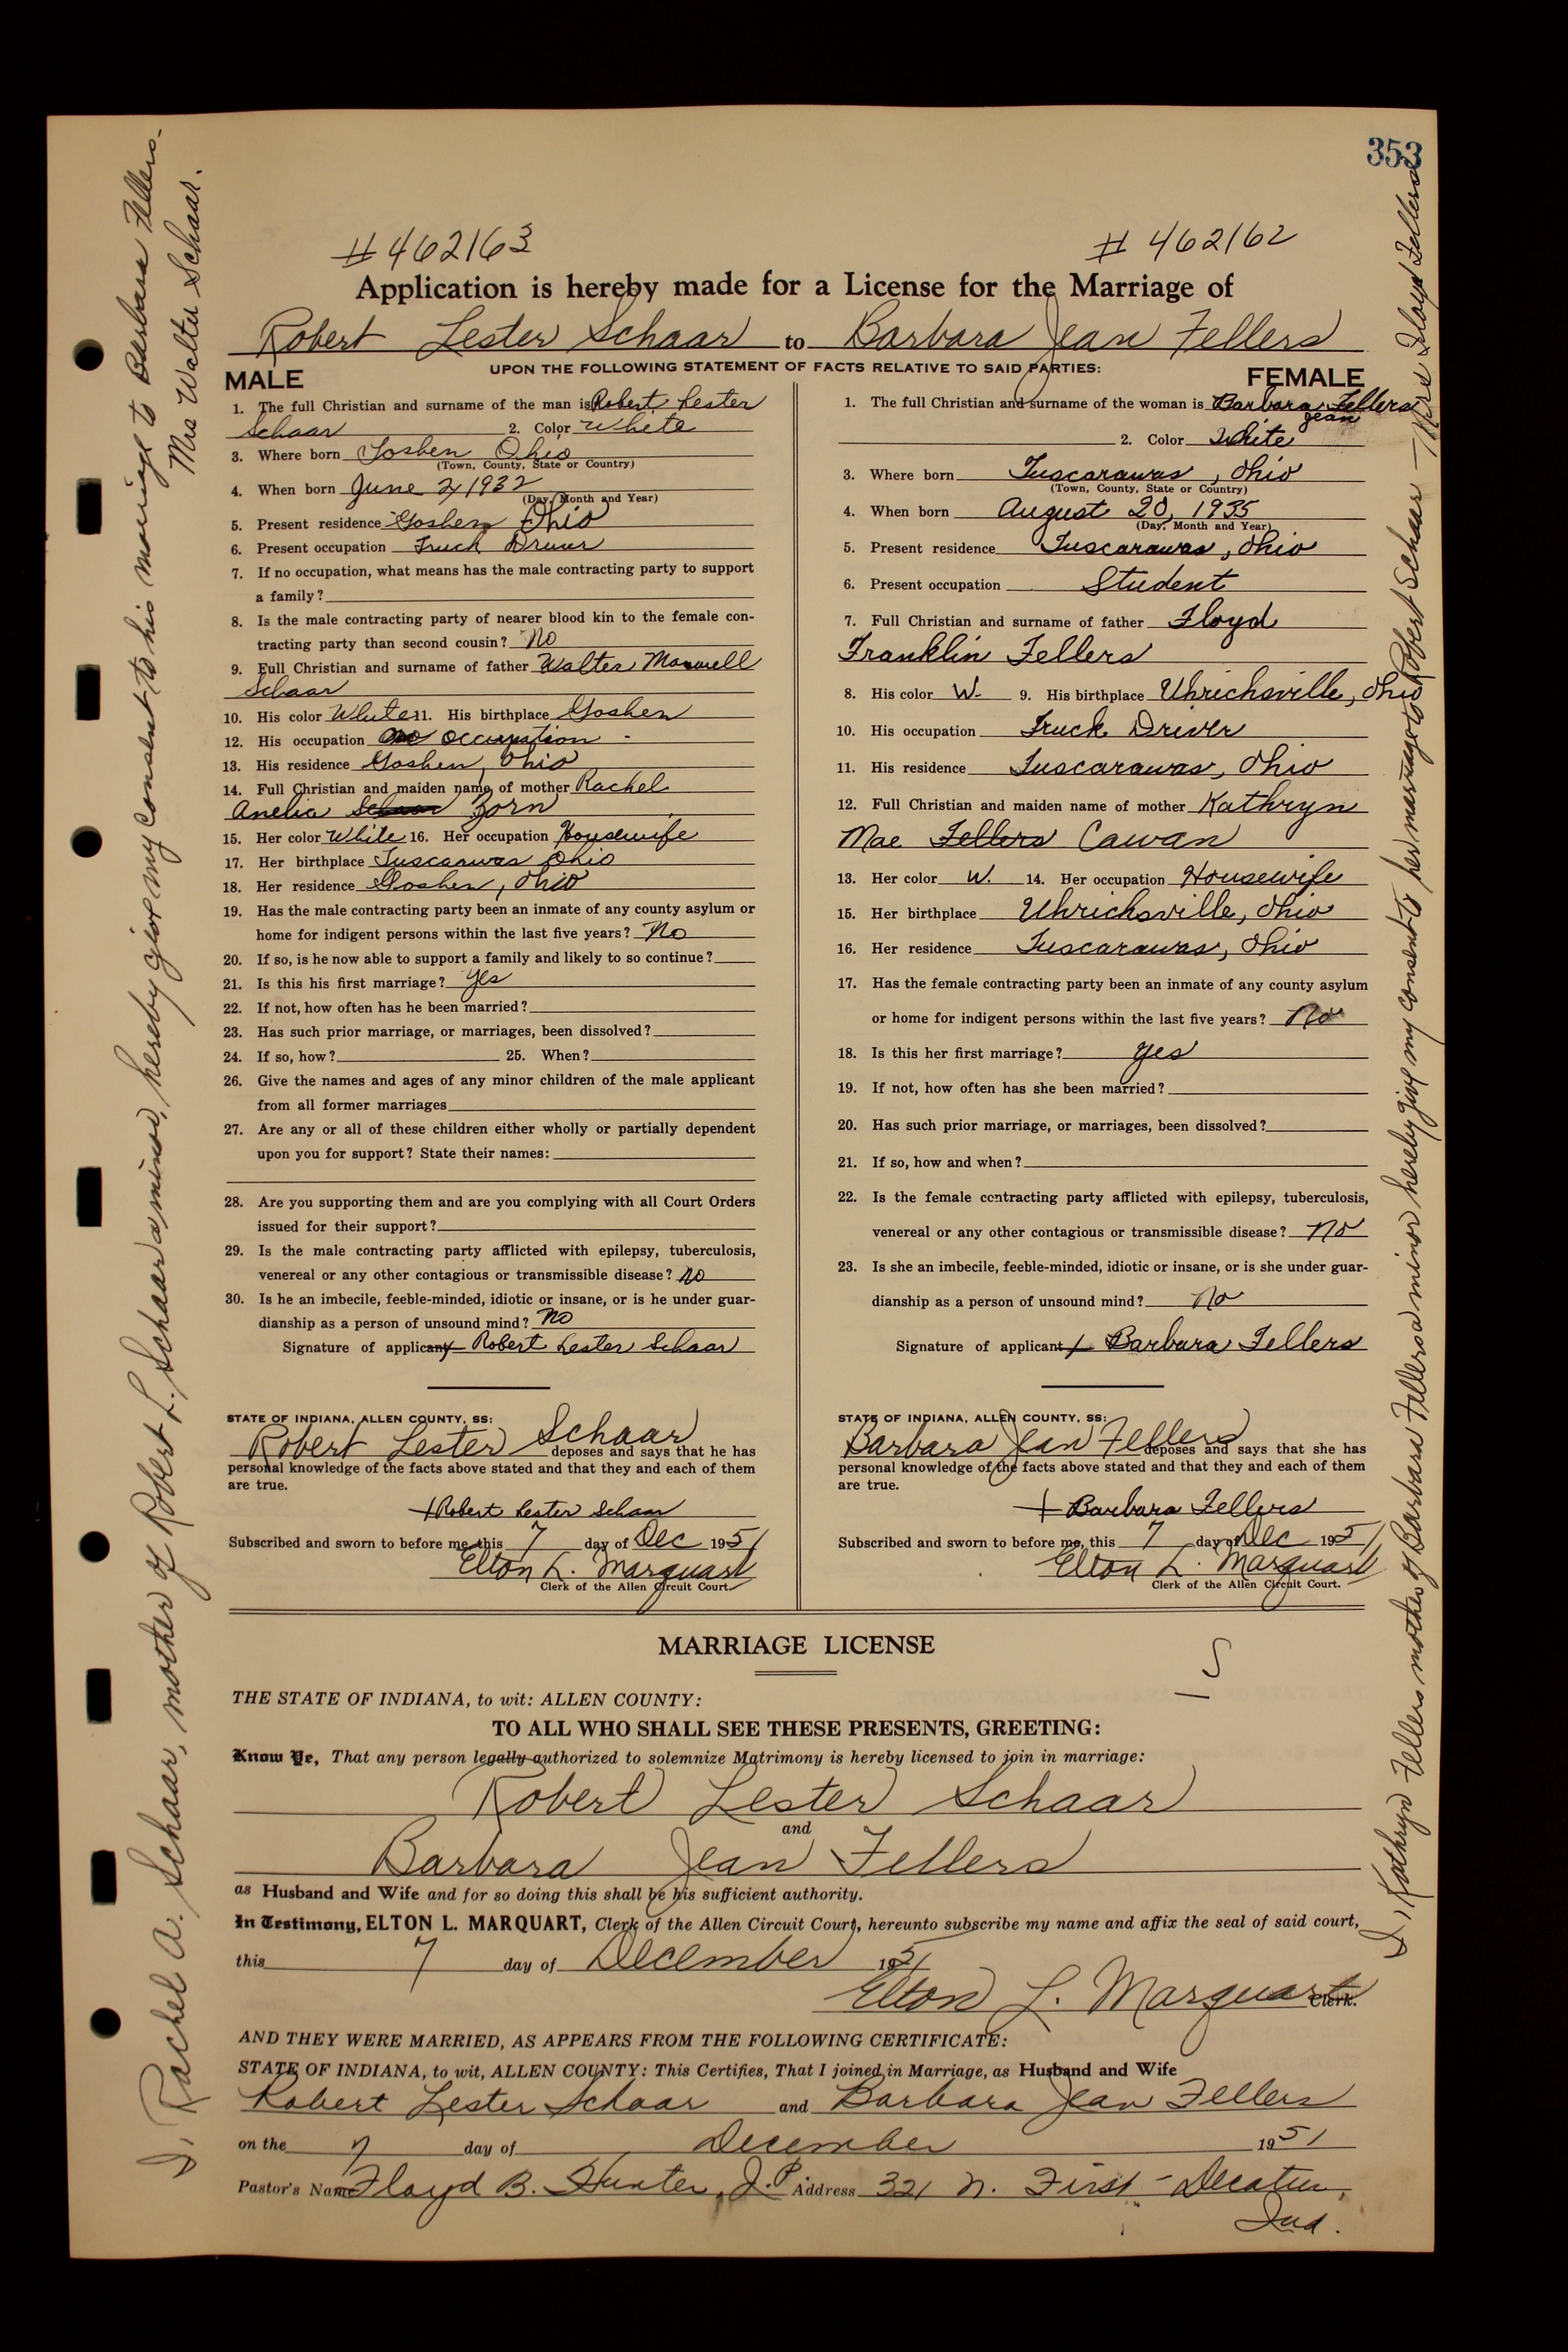 353
#462163
# 462162
Application is hereby made for a License for the Marriage of
Robert Lester Schaar to Barbara Jean Fellers
UPON THE FOLLOWING STATEMENT OF FACTS RELATIVE TO SAID PARTIES:
MALE
1. The full Christian and surname of the man is Robert Lester
Schaar 2. Color White
3. Where born Goshen Ohio
(Town, County, State or Country)
4. When born June 2, 1932
(Day, Month and Year)
5. Present residence Goshen Ohio
6. Present occupation Truck Driver
7. If no occupation, what means has the male contracting party to support
a family?
8. Is the male contracting party of nearer blood kin to the female con-
tracting party than second cousin? No
9. Full Christian and surname of father Walter Maxwell
Schaar
10. His color White 11. His birthplace Goshen
12. His occupation no occupation -
13. His residence Goshen, Ohio
14. Full Christian and maiden name of mother Rachel
Anelia Schaar Zorn
15. Her color White 16. Her occupation Housewife
17. Her birthplace Tuscarwas Ohio
18. Her residence Goshen, Ohio
19. Has the male contracting party been an inmate of any county asylum or
home for indigent persons within the last five years? No
20. If so, is he now able to support a family and likely to so continue?
21. Is this his first marriage? yes
22. If not, how often has he been married?
23. Has such prior marriage, or marriages, been dissolved?
24. If so, how? 25. When?
26. Give the names and ages of any minor children of the male applicant
from all former marriages
27. Are any or all of these children either wholly or partially dependent
upon you for support? State their names:
28. Are you supporting them and are you complying with all Court Orders
issued for their support?
29. Is the male contracting party afflicted with epilepsy, tuberculosis,
venereal or any other contagious or transmissible disease? no
30. Is he an imbecile, feeble-minded, idiotic or insane, or is he under guar-
dianship as a person of unsound mind? no
Signature of applicant Robert Lester Schaar
STATE OF INDIANA, ALLEN COUNTY, SS:
Robert Lester Schaar deposes and says that he has
personal knowledge of the facts above stated and that they and each of them
are true.
Robert Lester Schaar
Subscribed and sworn to before me, this 7 day of Dec 1951
Elton L. Marquart
Clerk of the Allen Circuit Court.
FEMALE
1. The full Christian and surname of the woman is Barbara Fellers
Jean
2. Color White
3. Where born Tuscarawas, Ohio
(Town, County, State or Country)
4. When born August 20, 1935
(Day, Month and Year)
5. Present residence Tuscarawas, Ohio
6. Present occupation Student
7. Full Christian and surname of father Floyd
Franklin Fellers
8. His color W. 9. His birthplace Uhrichsville, Ohio
10. His occupation Truck Driver
11. His residence Tuscarawas, Ohio
12. Full Christian and maiden name of mother Kathryn
Mae Fellers Cawan
13. Her color W. 14. Her occupation Housewife
15. Her birthplace Uhrichsville, Ohio
16. Her residence Tuscarawas, Ohio
17. Has the female contracting party been an inmate of any county asylum
or home for indigent persons within the last five years? No
18. Is this her first marriage? yes
19. If not, how often has she been married?
20. Has such prior marriage, or marriages, been dissolved?
21. If so, how and when?
22. Is the female contracting party afflicted with epilepsy, tuberculosis,
venereal or any other contagious or transmissible disease? no
23. Is she an imbecile, feeble-minded, idiotic or insane, or is she under guar-
dianship as a person of unsound mind? no
Signature of applicant Barbara Fellers
STATE OF INDIANA, ALLEN COUNTY, SS:
Barbara Jean Fellers deposes and says that she has
personal knowledge of the facts above stated and that they and each of them
are true.
Barbara Fellers
Subscribed and sworn to before me, this 7 day of Dec 1951
Elton L. Marquart
Clerk of the Allen Circuit Court.
MARRIAGE LICENSE
THE STATE OF INDIANA, to wit: ALLEN COUNTY:
TO ALL WHO SHALL SEE THESE PRESENTS, GREETING:
Know Ye, That any person legally authorized to solemnize Matrimony is hereby licensed to join in marriage:
Robert Lester Schaar
and
Barbara Jean Fellers
as Husband and Wife and for so doing this shall be his sufficient authority.
In Testimony, ELTON L. MARQUART, Clerk of the Allen Circuit Court, hereunto subscribe my name and affix the seal of said court,
this 7 day of December 1951
Elton L. Marquart Clerk.
AND THEY WERE MARRIED, AS APPEARS FROM THE FOLLOWING CERTIFICATE:
STATE OF INDIANA, to wit, ALLEN COUNTY: This Certifies, That I joined in Marriage, as Husband and Wife
Robert Lester Schaar and Barbara Jean Fellers
on the 7 day of December 1951
Pastor's Name Floyd B. Hunter, J.P. Address 321 N. First - Decatur,
Ind.
I, Rachel A. Schaar, mother of Robert L. Schaar a minor, hereby give my consent to his marriage to Barbara Fellers.
Mrs Walter Schaar.
I, Kathryn Fellers mother of Barbara Fellers a minor hereby give my consent to her marriage to Robert Schaar - Mrs Floyd Fellers